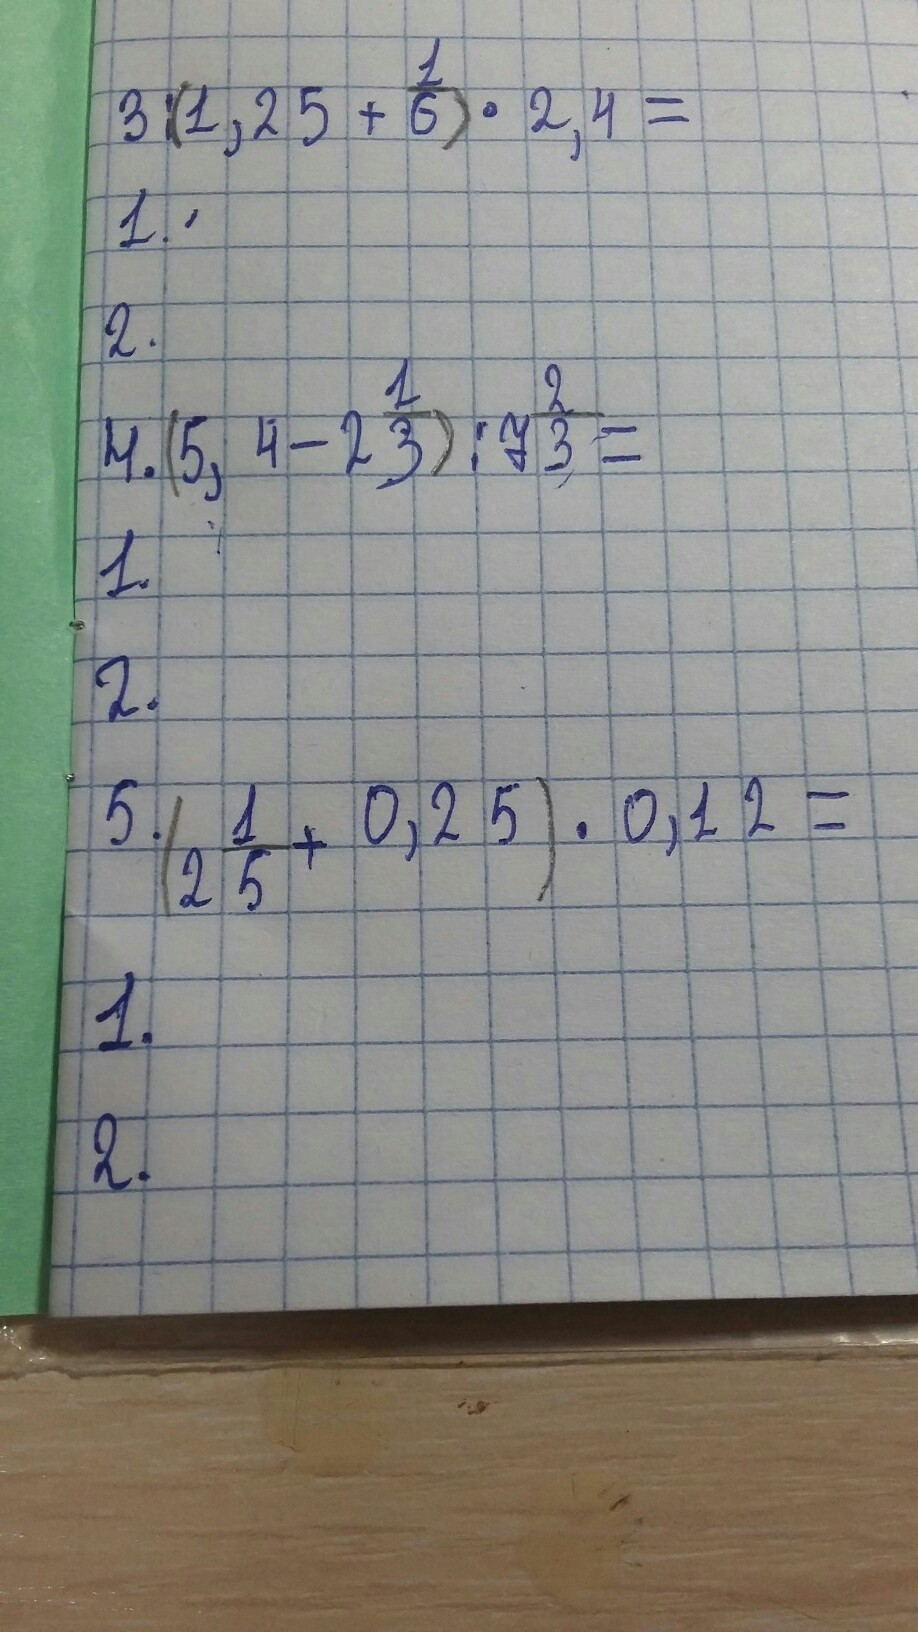 3.(1,25 + 1/6) · 2,4 =
1.
2.
4.(5,4 − 2 1/3) : 7 2/3 =
1.
2.
5.(2 1/5 + 0,25) · 0,12 =
1.
2.